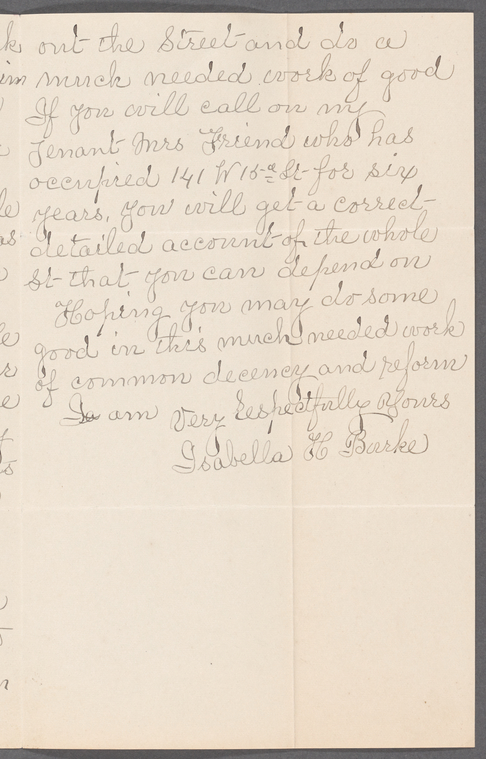 out the Street and do a
much needed work of good
If you will call on my
Tenant Mrs Friend who has
occupired 141 W 15 St for six
years, you will get a correct
detailed account of the whole
St that you can depend on
Hoping you may do some
good in this much needed work
of common decency and reform
I am Very Respectfully Yours
Isabella H Burke